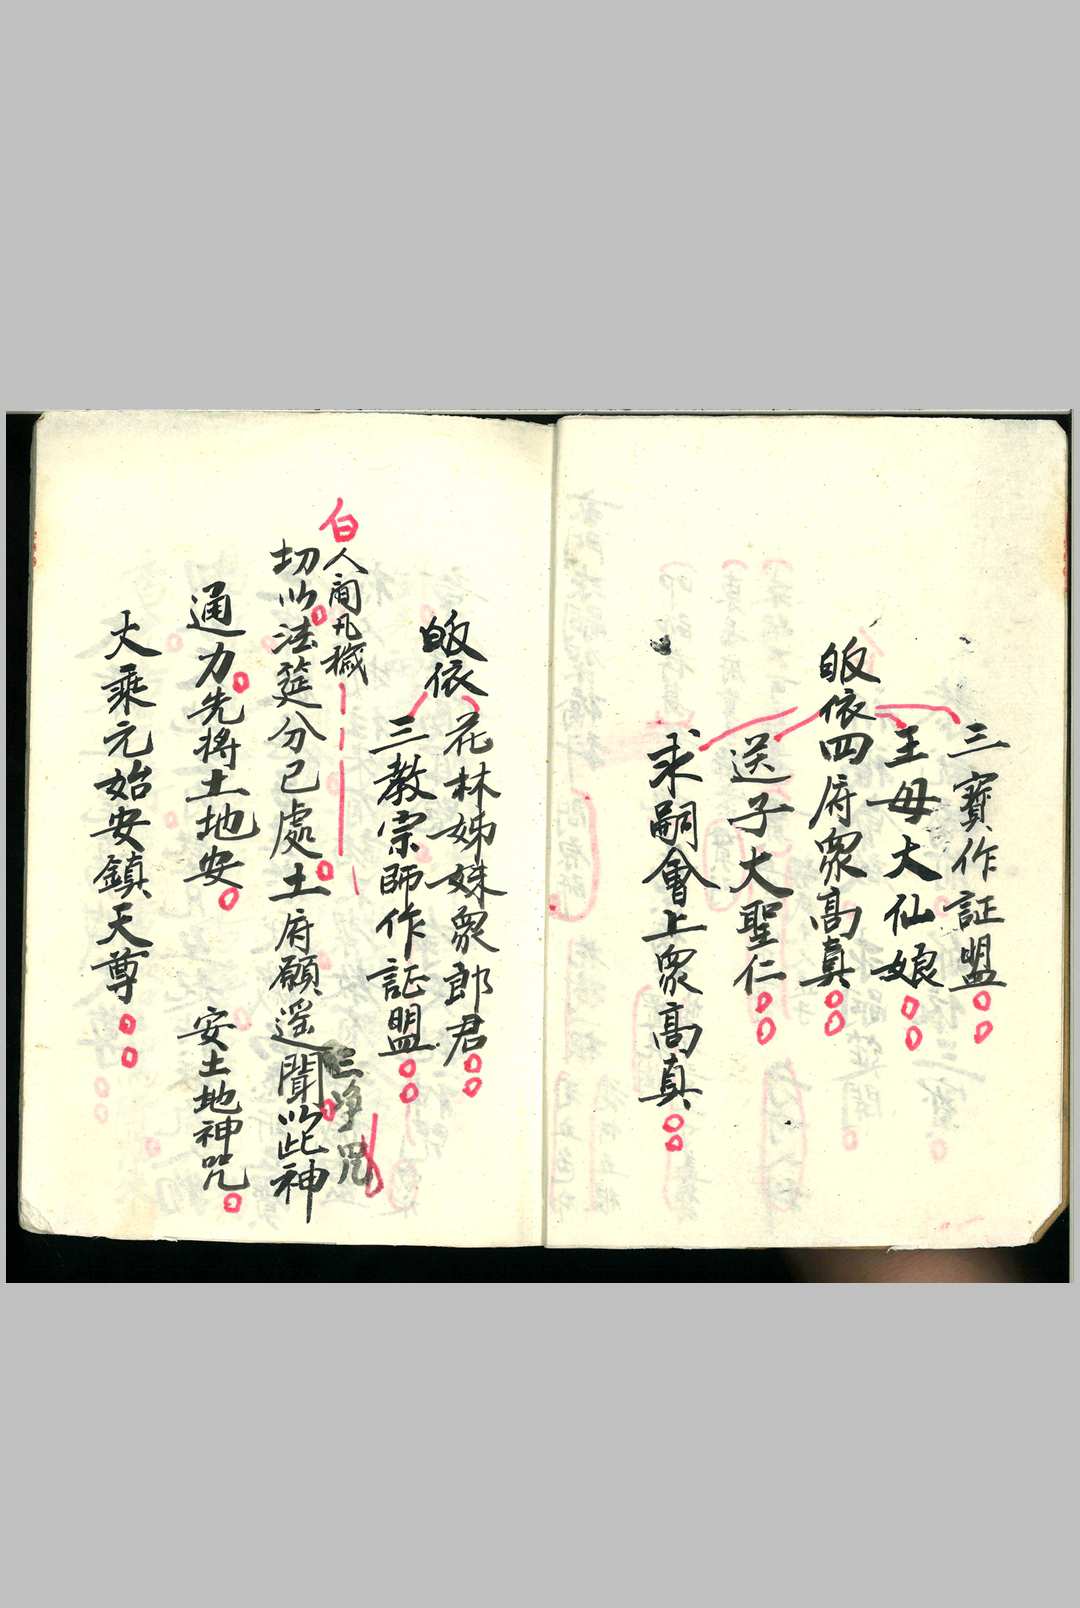 三寶作証盟
王母大仙娘
皈依四府眾高真
送子大聖仁
求嗣會上眾高真
皈依
花林姊妹眾郎君
三教宗師作証盟
白
人間凡穢
三净咒
切以法筵分已處土府願遥聞以此神
通力先將土地安
安土地神咒
大乘元始安鎮天尊